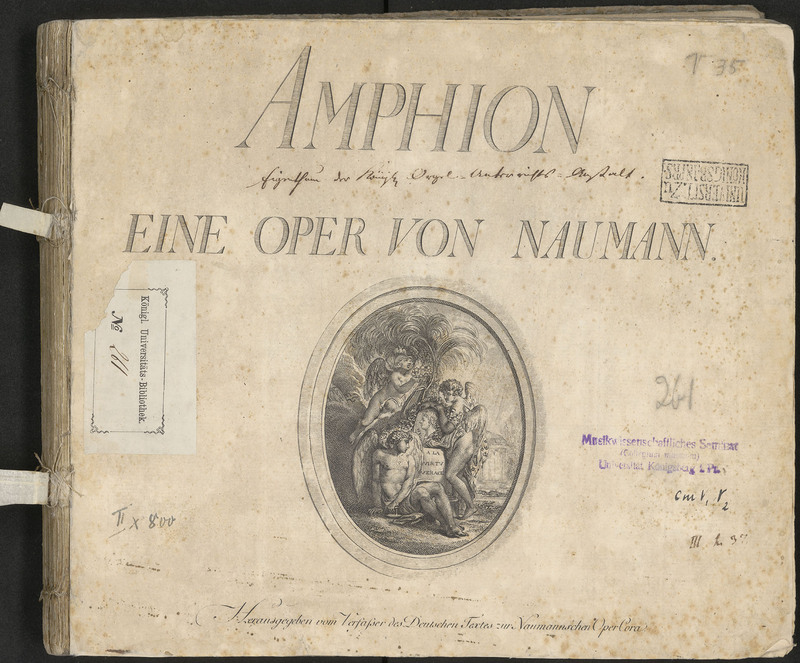 AMPHION
V 35
Eigenthum der Königl Orgel-Unterrichts-Anstalt.
UNIVERSIT. ZU
KÖNIGSBERG
EINE OPER VON NAUMANN.
Königl. Universitäts-Bibliothek.
No
A LA
VERTU
261
Musikwissenschaftliches Seminar
Universität Königsberg i. Pr.
II x 800
III
Herausgegeben vom Verfaßer des Deutschen Textes zur Naumannschen Oper Cora